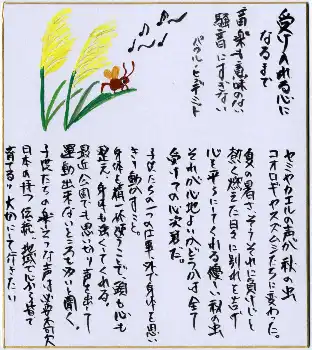 受け入れる心に
なるまで
音楽も意味のない
騒音にすぎない
パウル・ヒンデミット
セミやカエルの声が、秋の虫
コオロギやスズムシたちに変わった。
夏の暑さ、そしてそれに負けじと
熱く燃えた日々に別れを告げ
心を平らにしてくれる優しい秋の虫
それが心地よいかどうかは全て
受け手の心次第だ。
子供たちの一つの仕事、それは身体を思い
きり動かすこと。
身体を精一杯使うことで、頭も心も
整え、身体も強くしてくれる。
最近公園でも思いやり声を出して
運動出来ないところが多いと聞く。
子供たちの楽しそうな声は必要不可欠
日本の持つ伝統、地域で心から皆で
育てる事大切にして行きたい